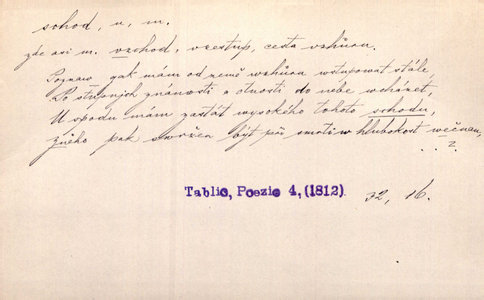 schod, u, m.
zde asi m. vzchod, vzestup, cesta vzhůru.
Poznaw gak mám od země wzhůru wstupowat stále
Po stupnjch známosti a ctnosti do nebe wcházet,
U spodu mám zastát wysokého tohoto schodu,
Z něho pak swržen být při smrti w hlubokost wěčnau,
. . ?
Tablic, Poezie 4, (1812). 32, 16.